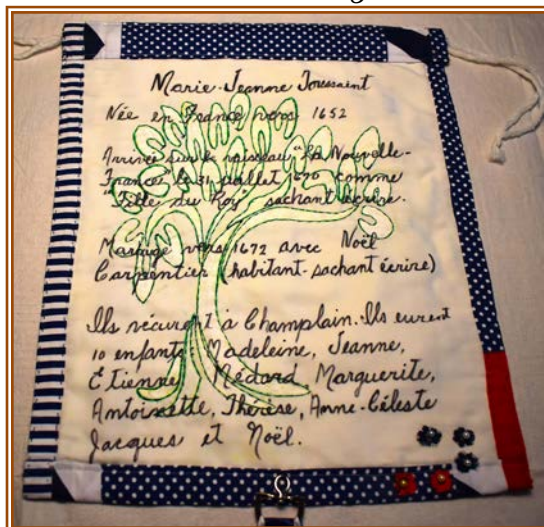 Marie-Jeanne Toussaint
Née en France vers 1652
Arrivée sur le vaisseau "La Nouvelle-
France" le 31 juillet 1670 comme
"Fille du Roy" sachant écrire.
Mariage vers 1672 avec Noël
Carpentier (habitant-sachant écrire)
Ils vécurent à Champlain. Ils eurent
10 enfants: Madeleine, Jeanne,
Étienne, Médard, Marguerite,
Antoinette, Thérèse, Anne-Céleste
Jacques et Noël.